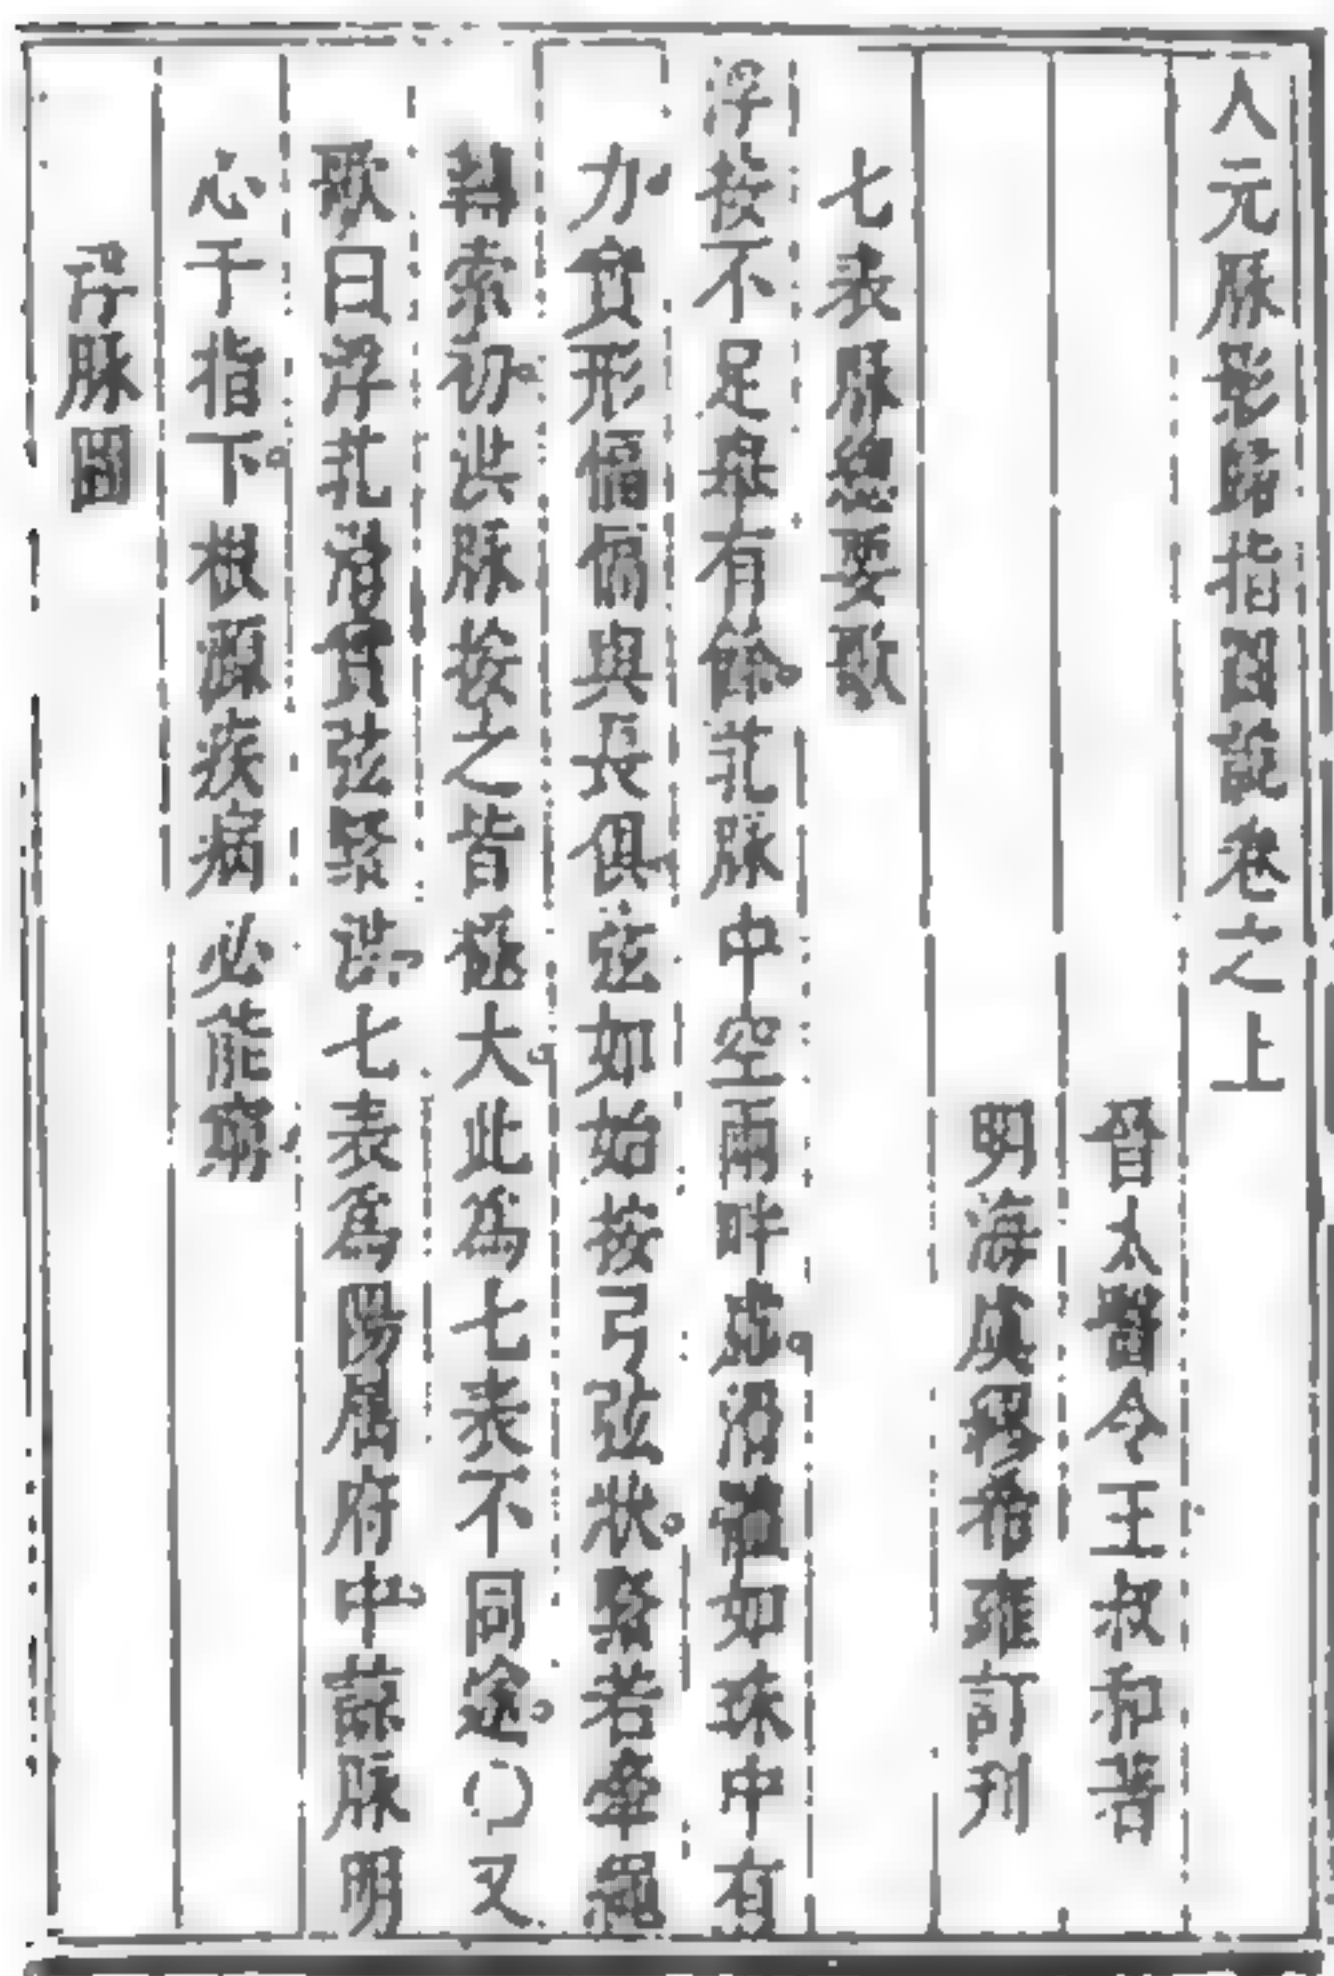 人元脉影歸指圖說卷之上
晉太醫令王叔和著
明海虞繆希雍訂刋
七表脉總要歌
浮按不足舉有餘芤脉中空兩畔虛滑體如珠中有
力實形愊愊與長俱弦如始按弓弦狀緊若牽繩
轉索初洪脉按之皆極大此為七表不同途〇又
歌曰浮芤滑實弦緊洪七表爲陽屬府中諒脉明
心于指下根源疾病必能窮
浮脉圖